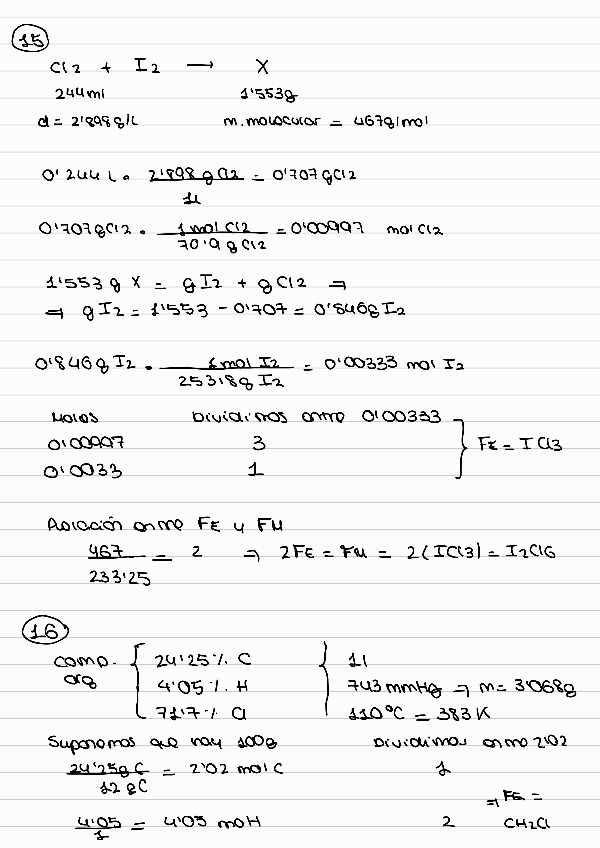 15
Cl2 + I2 → X
244ml 1'553g
d = 2'898g/L m.molecular = 467g/mol
0'244 L · 2'898 g Cl2 / 1L = 0'707 g Cl2
0'707gCl2 · 1 mol Cl2 / 70'9 g Cl2 = 0'00997 mol Cl2
1'553 g X = g I2 + g Cl2 ⇒
⇒ g I2 = 1'553 - 0'707 = 0'846g I2
0'846g I2 · 1 mol I2 / 253'8g I2 = 0'00333 mol I2
Moles Dividimos entre 0'00333
0'00997 3 } FE = I Cl3
0'0033 1
Relación entre FE y FM
467 / 233'25 = 2 ⇒ 2FE = FM = 2(ICl3) = I2Cl6
16
comp. org { 24'25 % C } 1 l
4'05 % H 743 mmHg ⇒ m = 3'068g
71'7 % Cl 110°C = 383 K
Suponemos que hay 100g Dividimos entre 2'02
24'25g C / 12 g C = 2'02 mol C 1
4'05 / 1 = 4'05 mol H 2 ⇒ FE = CH2Cl